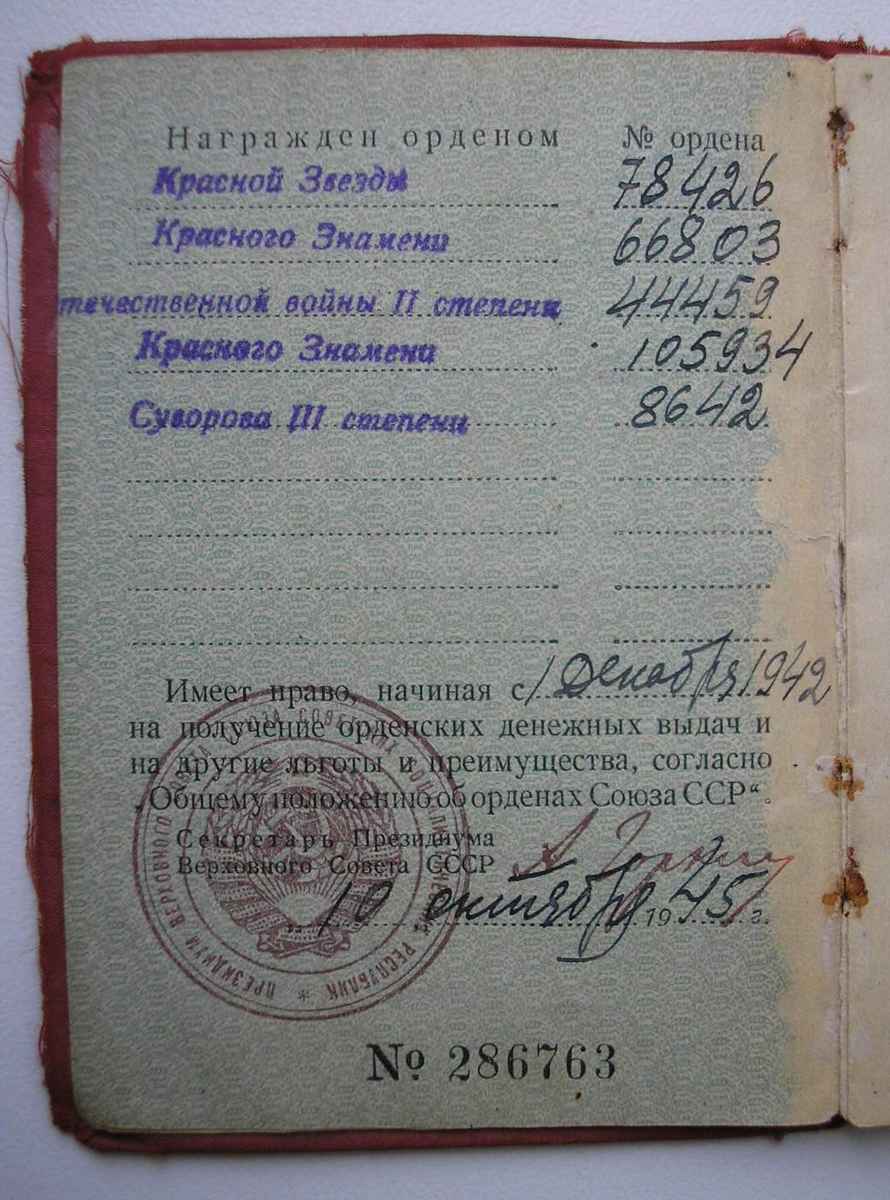 Награжден орденом № ордена
Красной Звезды 78426
Красного Знамени 66803
течественной войны II степени 44459
Красного Знамени 105934
Суворова III степени 8642
Имеет право, начиная с 1 декабря 1942
на получение орденских денежных выдач и
на другие льготы и преимущества, согласно
„Общему положению об орденах Союза ССР“.
Секретарь Президиума
Верховного Совета СССР А Горкин
„10 октября 1945 г.
ПРЕЗИДИУМ ВЕРХОВНОГО СОВЕТА СОЮЗА СОВЕТСКИХ СОЦИАЛИСТИЧЕСКИХ РЕСПУБЛИК *
№ 286763